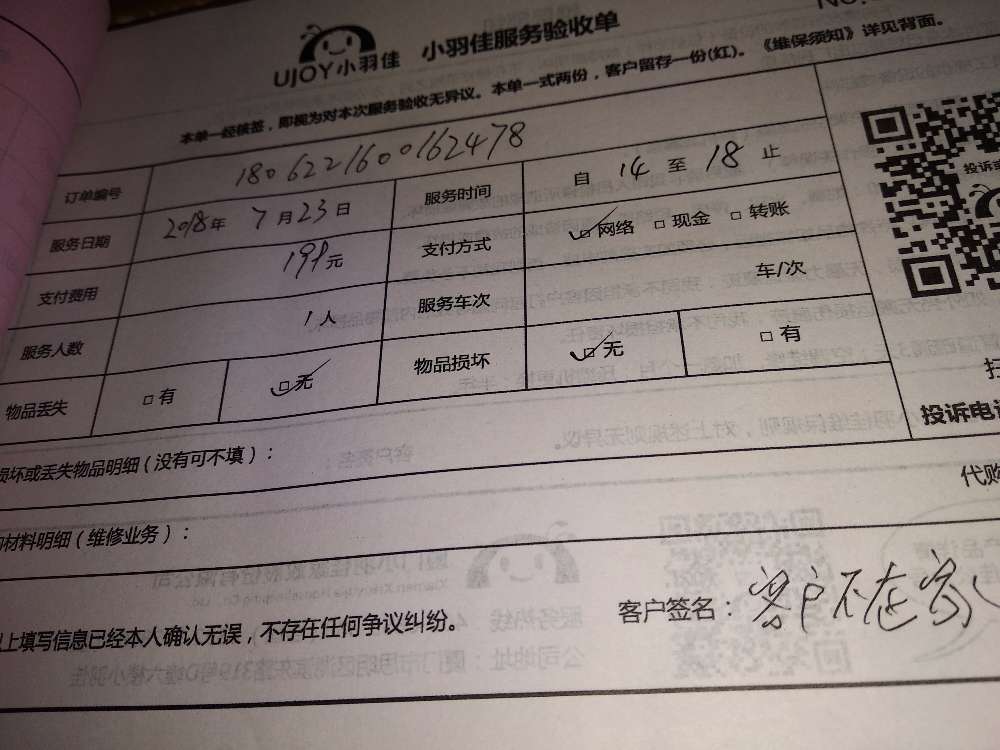 UJOY小羽佳 小羽佳服务验收单
本单一经核签，即视为对本次服务验收无异议。本单一式两份，客户留存一份(红)。《维保须知》详见背面。
订单编号 1806221600162478
服务日期 2018年 7月23日 服务时间 自 14 至 18 止
支付费用 199元 支付方式 ☑网络 □现金 □转账
服务人数 1人 服务车次 车/次
物品丢失 □有 ☑无 物品损坏 ☑无 □有
投诉电
损坏或丢失物品明细（没有可不填）：
代购
材料明细（维修业务）：
上填写信息已经本人确认无误，不存在任何争议纠纷。
客户签名：客户不在家